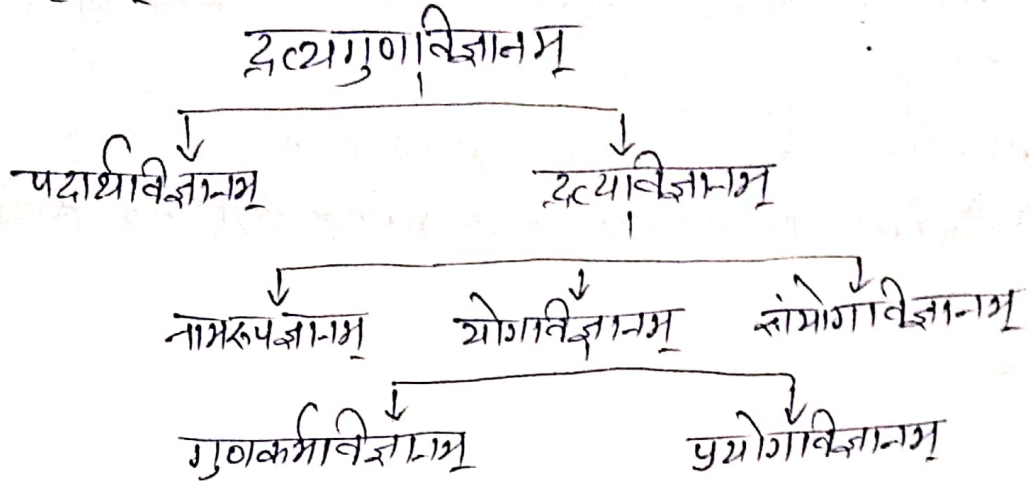 द्रव्यगुणविज्ञानम्
पदार्थविज्ञानम् द्रव्यविज्ञानम्
नामरूपज्ञानम् योगविज्ञानम् संयोगविज्ञानम्
गुणकर्मविज्ञानम् प्रयोगविज्ञानम्